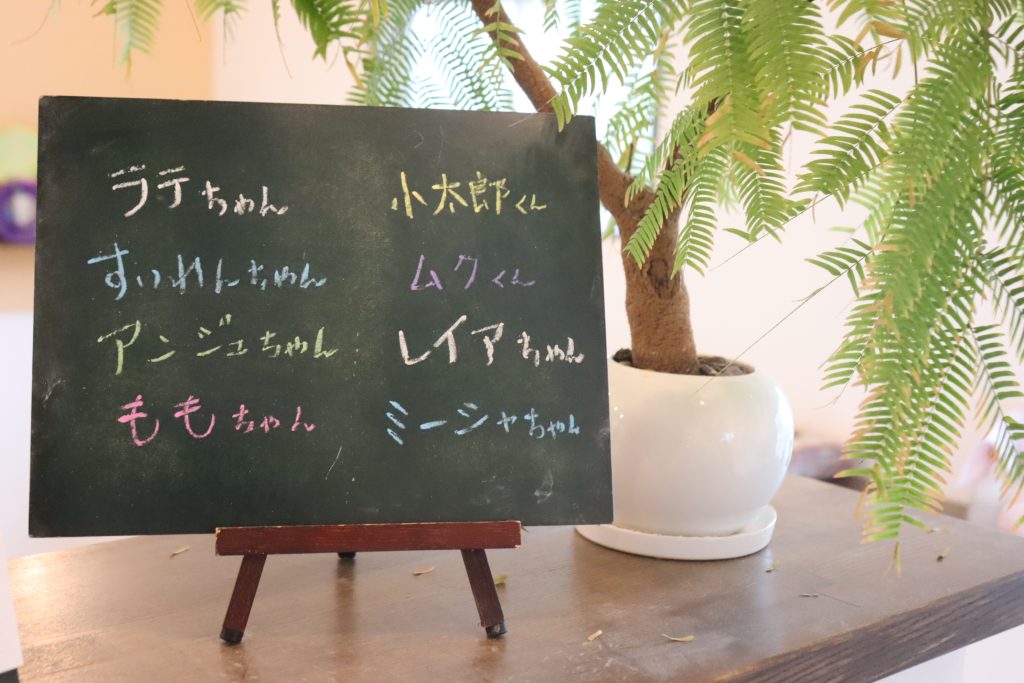 ラテちゃん
すいれんちゃん
アンジュちゃん
ももちゃん
小太郎くん
ムクくん
レイアちゃん
ミーシャちゃん